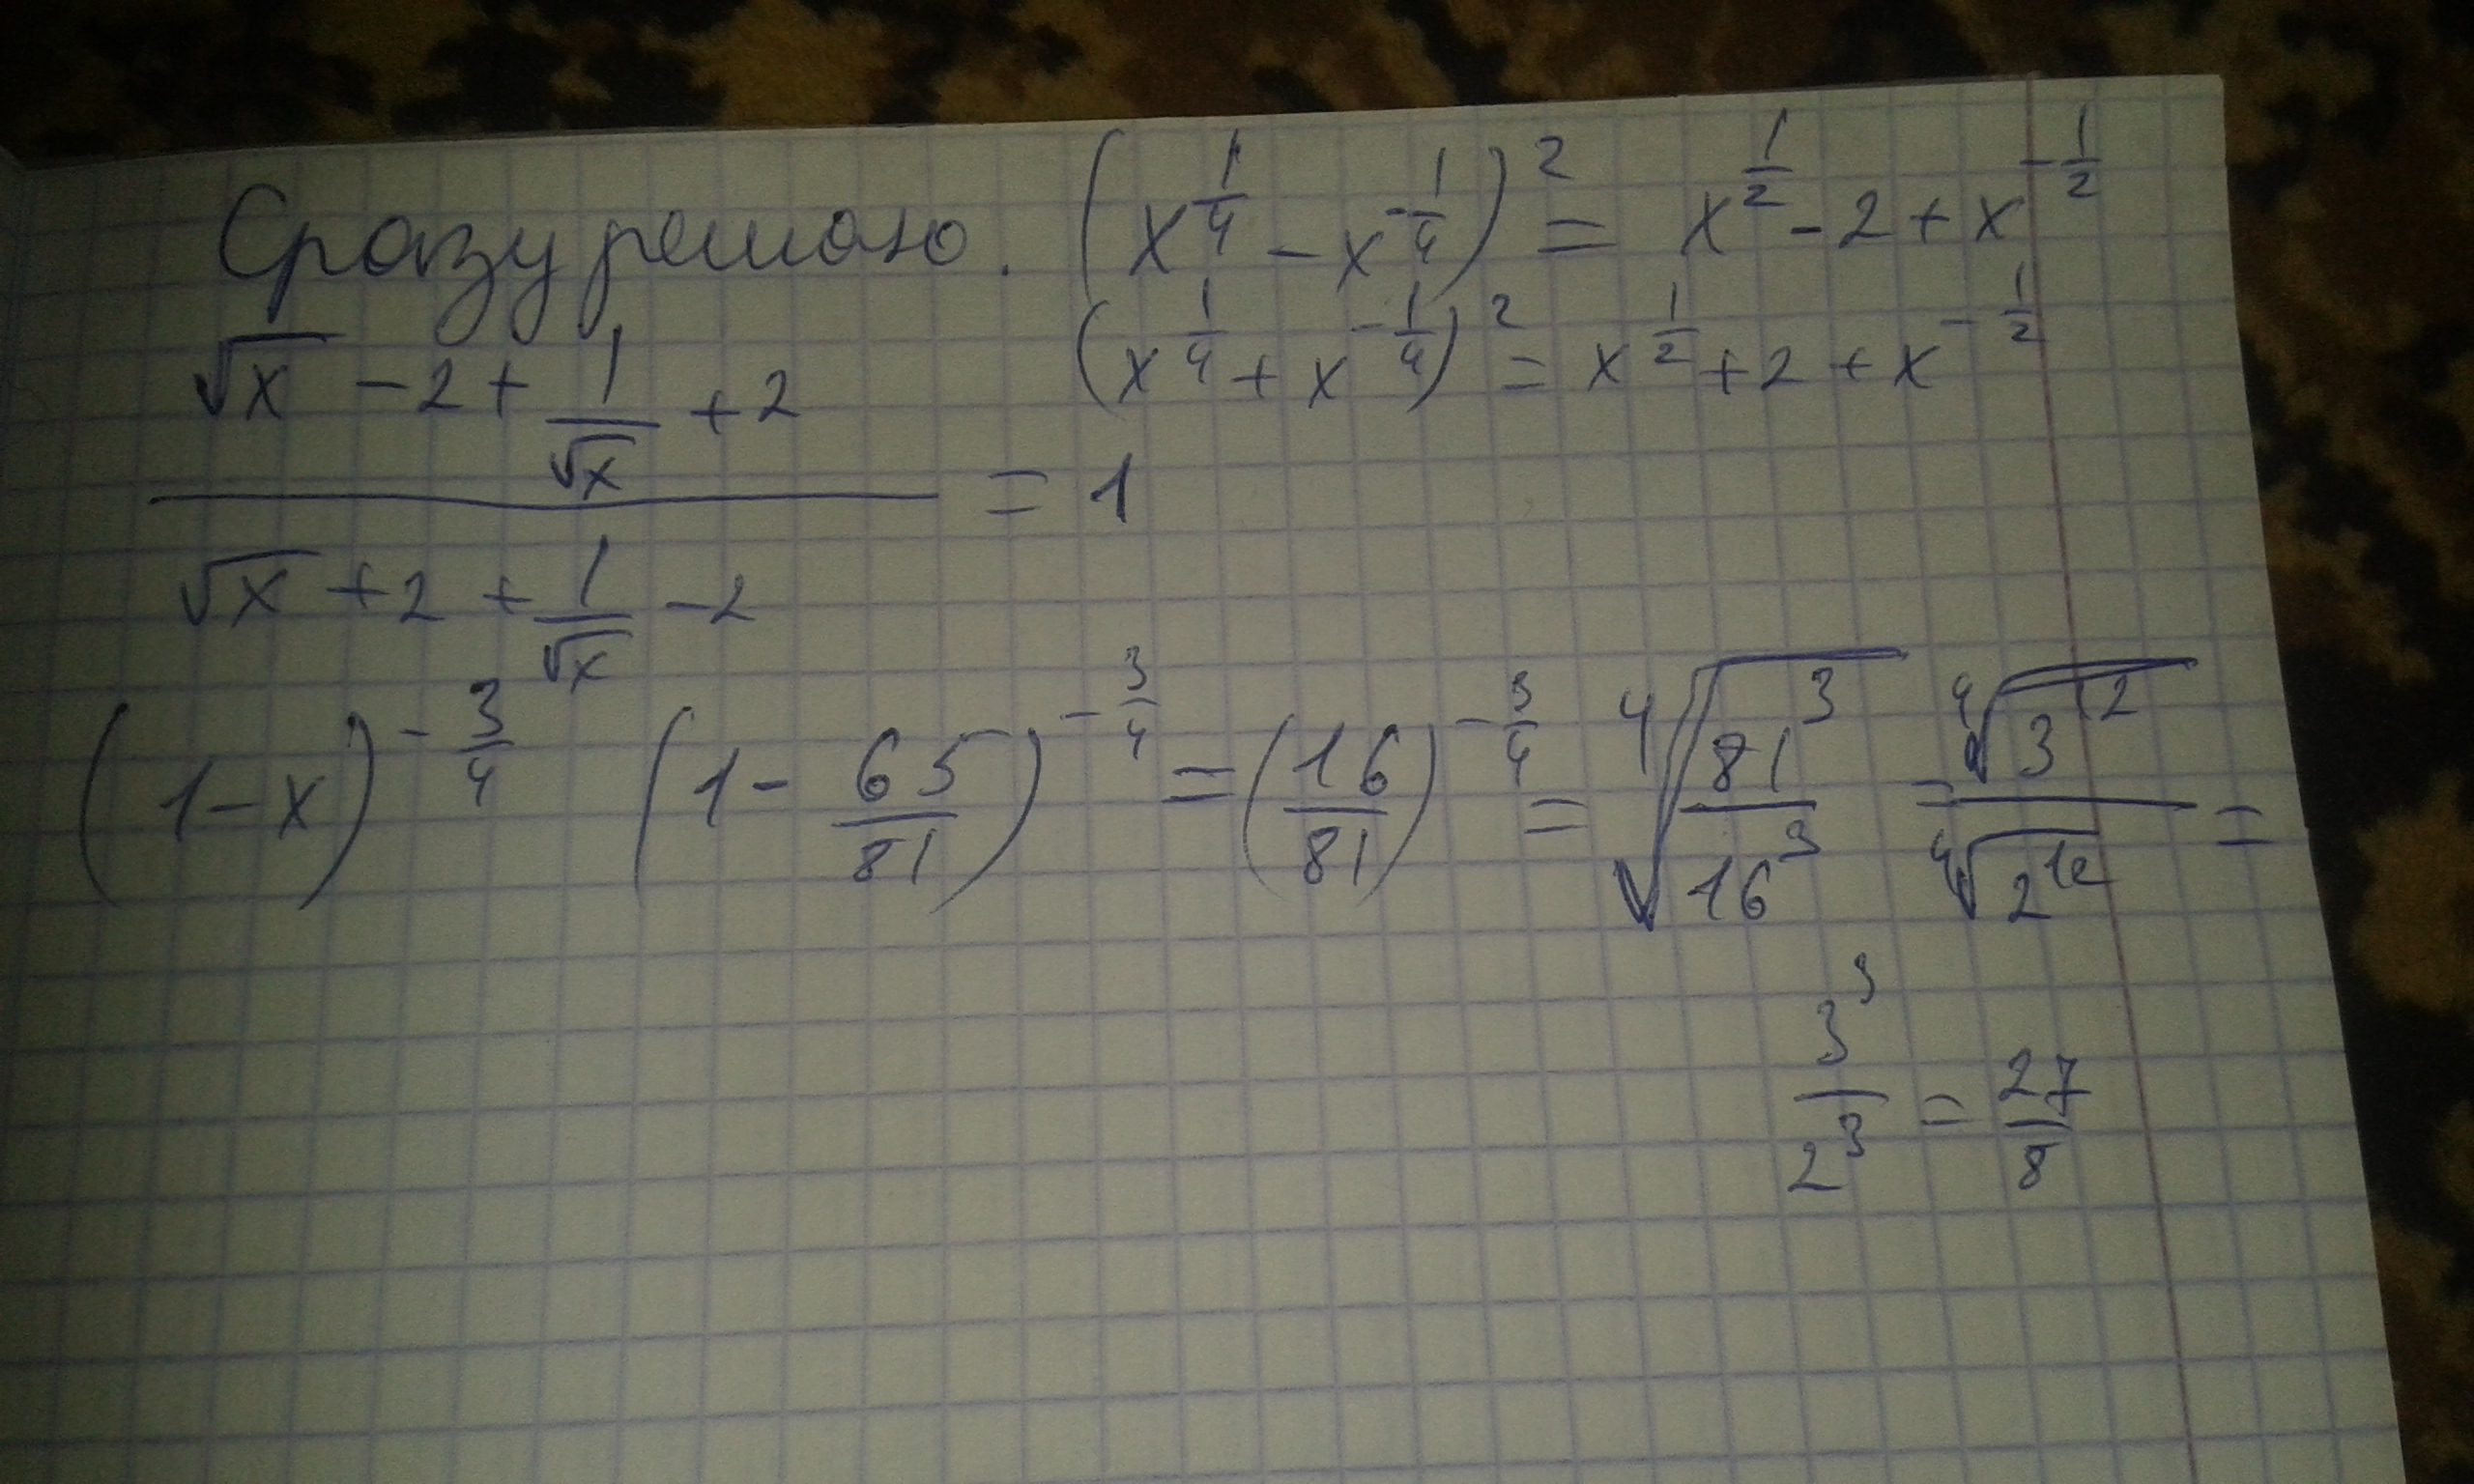 Сразу решаю. (x^{1/4} - x^{-1/4})^2 = x^{1/2} - 2 + x^{-1/2}
(x^{1/4} + x^{-1/4})^2 = x^{1/2} + 2 + x^{-1/2}
(√x - 2 + 1/√x + 2) / (√x + 2 + 1/√x - 2) = 1
(1 - x)^{-3/4} (1 - 65/81)^{-3/4} = (16/81)^{-3/4} = ⁴√(81^3/16^3) = ⁴√(3^{12}) / ⁴√(2^{12}) =
3^3/2^3 = 27/8